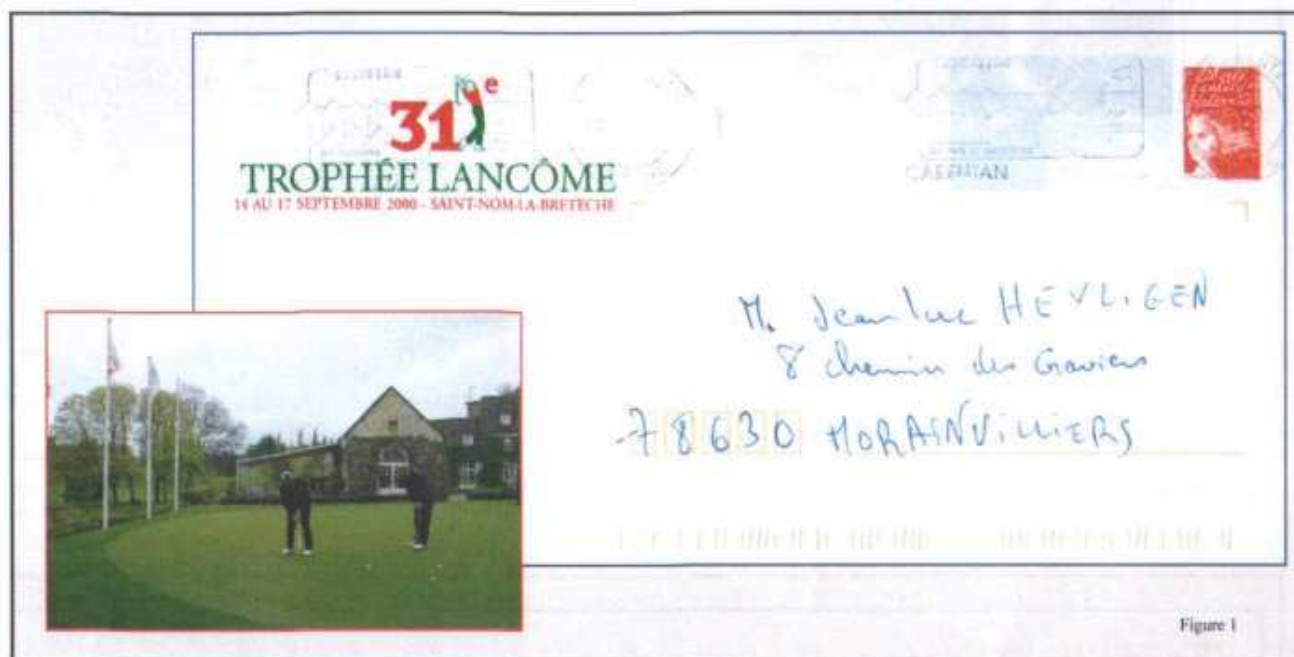 31e
TROPHÉE LANCÔME
14 AU 17 SEPTEMBRE 2000 - SAINT-NOM-LA-BRETECHE
CARENTAN
M. Jean luc HEVLIGEN
8 chemin des Graviers
78630 MORAINVILLIERS
Figure 1